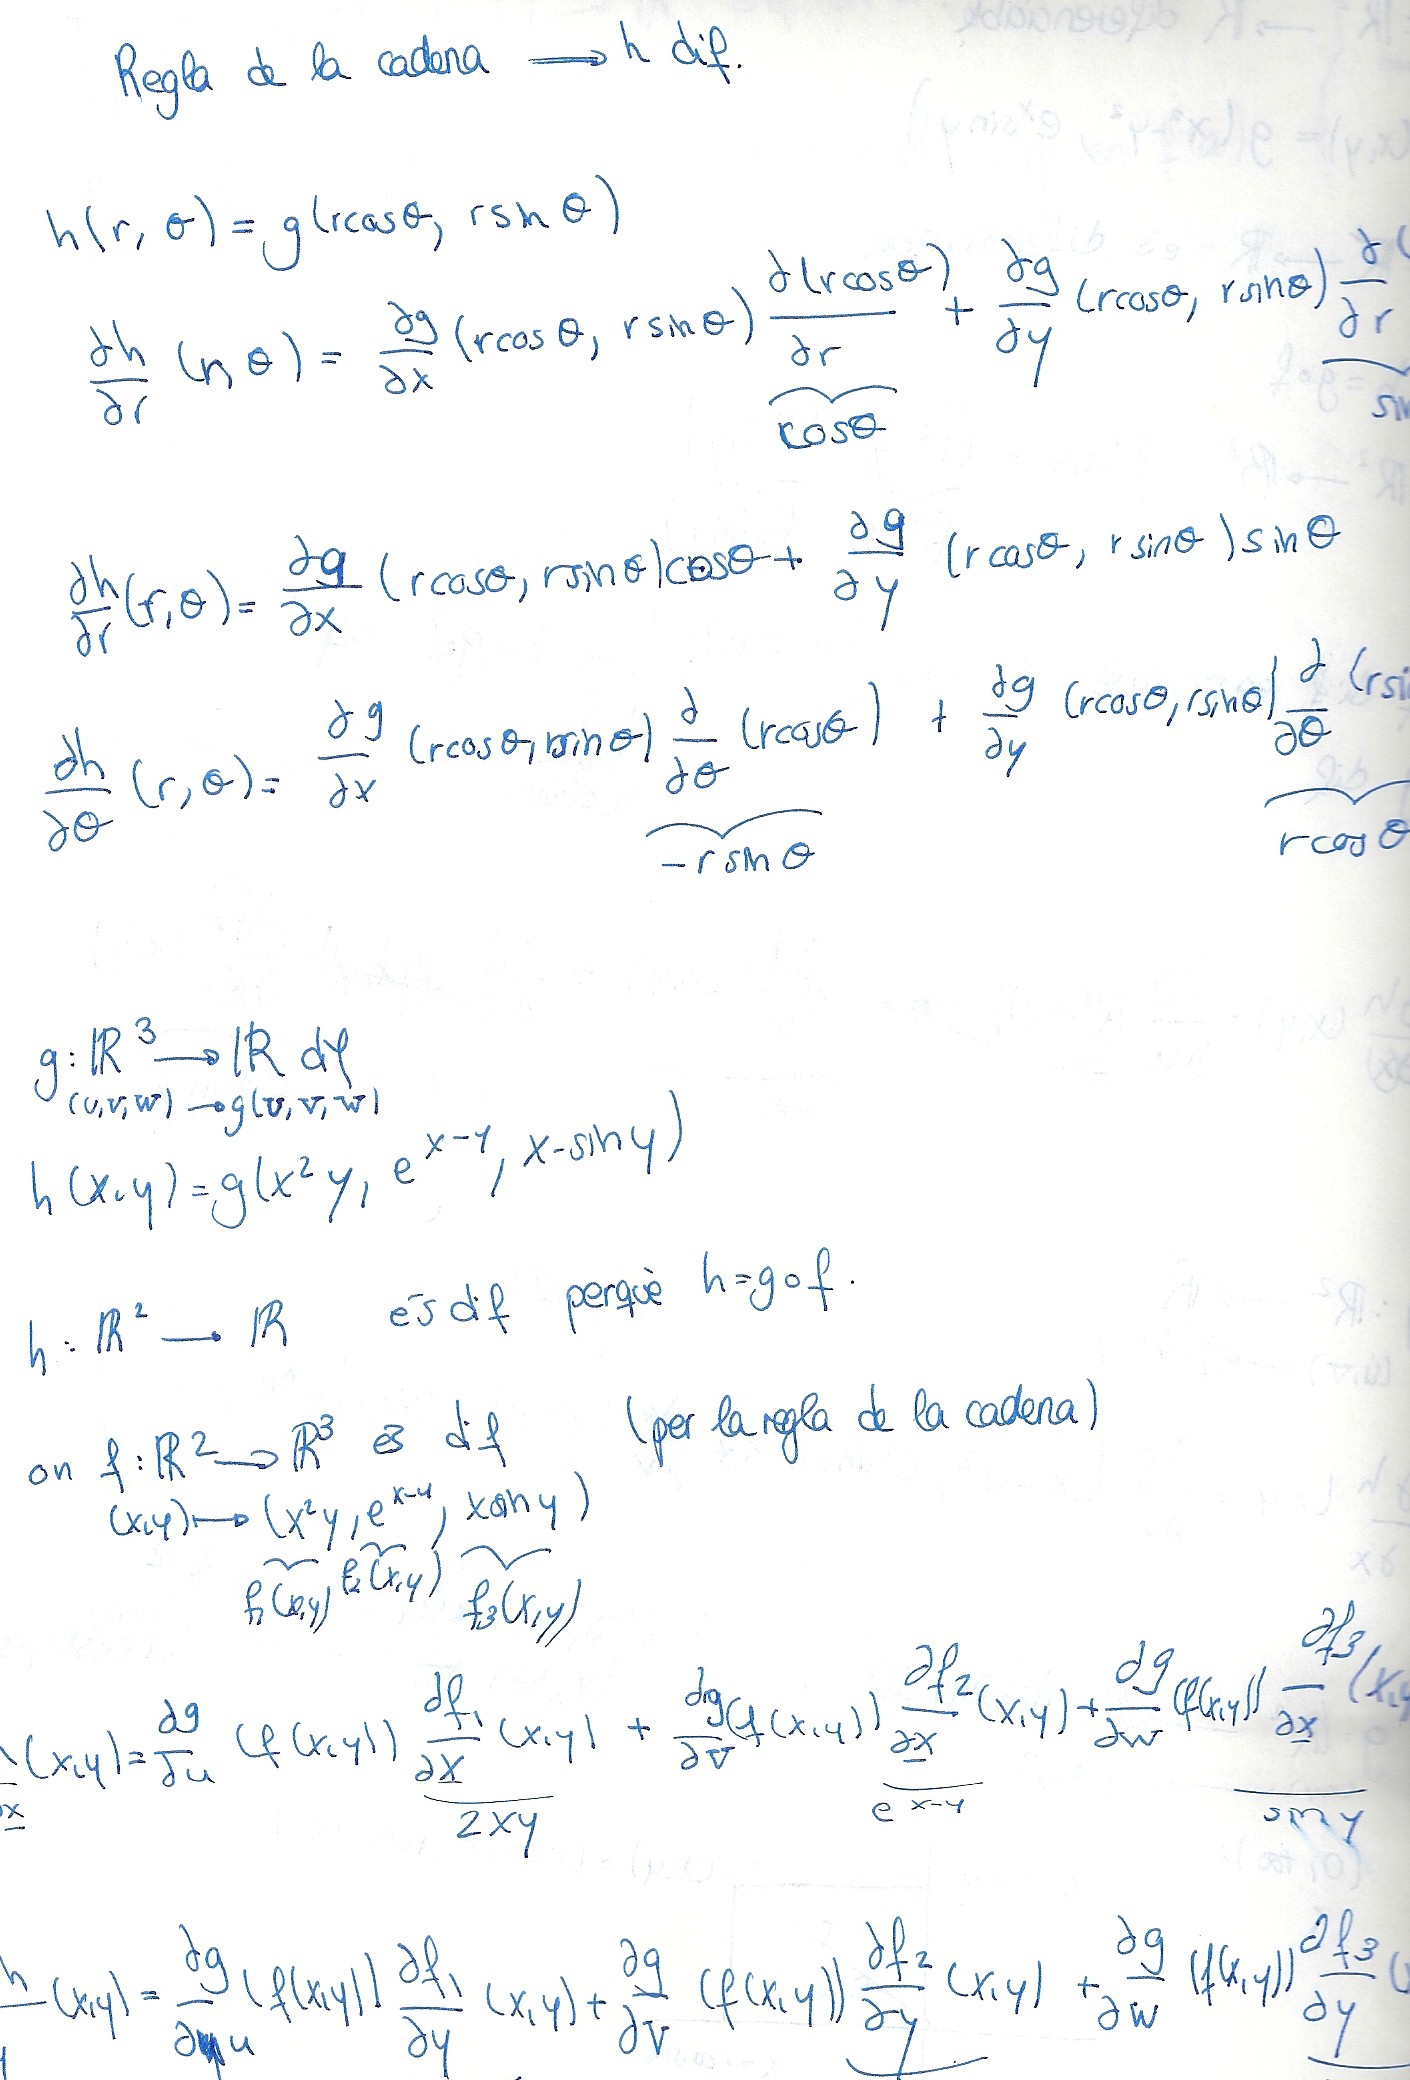 Regla de la cadena → h dif.
h(r, θ) = g(rcosθ, rsin θ)
∂h/∂r (r, θ) = ∂g/∂x (rcos θ, r sinθ) ∂(rcosθ)/∂r + ∂g/∂y (rcosθ, r sinθ) ∂(/∂r
cosθ sin
∂h/∂r (r, θ) = ∂g/∂x (rcosθ, rsinθ) cosθ + ∂g/∂y (r cosθ, r sinθ) sinθ
∂h/∂θ (r, θ) = ∂g/∂x (rcosθ, rsinθ) ∂/∂θ (rcosθ) + ∂g/∂y (rcosθ, rsinθ) ∂/∂θ (rsi
-r sin θ rcosθ
g: ℝ³ → ℝ dif
(u, v, w) → g(u, v, w)
h(x,y) = g(x²y, e^(x-y), x-siny)
h: ℝ² → ℝ és dif perquè h=g∘f.
on f: ℝ² → ℝ³ és dif (per la regla de la cadena)
(x,y) ↦ (x²y, e^(x-y), xsiny)
f₁(x,y) f₂(x,y) f₃(x,y)
∂x (x,y) = ∂g/∂u (f(x,y)) ∂f₁/∂x (x,y) + ∂g/∂v (f(x,y)) ∂f₂/∂x (x,y) + ∂g/∂w (f(x,y)) ∂f₃/∂x (x,y
2xy e^(x-y) siny
h (x,y) = ∂g/∂u (f(x,y)) ∂f₁/∂y (x,y) + ∂g/∂v (f(x,y)) ∂f₂/∂y (x,y) + ∂g/∂w (f(x,y)) ∂f₃/∂y (